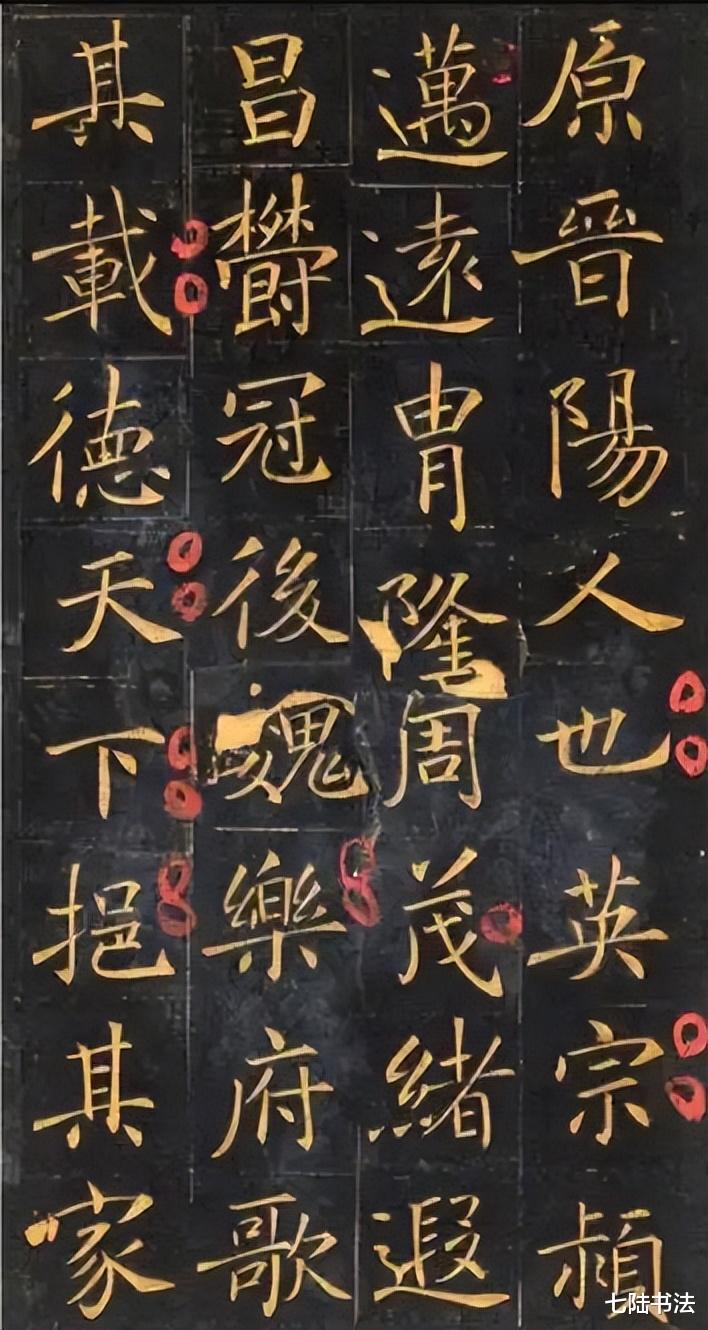 原晉陽人也英宗穎
邁遠胄隆周茂緒遐
昌欝冠後魏樂府歌
其載德天下挹其家
七陆书法